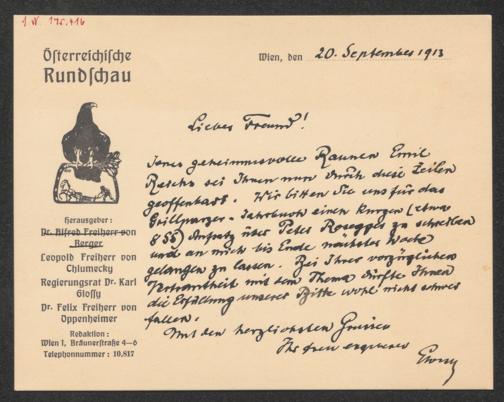 I.N. 175.416
Österreichische
Rundschau
Wien, den 20. September 1913
Herausgeber:
Dr. Alfred Freiherr von
Berger
Leopold Freiherr von
Chlumecky
Regierungsrat Dr. Karl
Glossy
Dr. Felix Freiherr von
Oppenheimer
Redaktion:
Wien I, Bräunerstraße 4–6
Telephonnummer: 10.817
Lieber Freund!
Jenes geheimnisvolle Raunen Emil
Reichs sei Ihnen nun durch diese Zeilen
geoffenbart. Wir bitten Sie uns für das
Grillparzer-Jahrbuch einen kurzen (etwa
8 SS) Aufsatz über Peter Rosegger zu schreiben
und an mich bis Ende nächster Woche
gelangen zu lassen. Bei Ihrer vorzüglichen
Vertrautheit mit dem Thema dürfte Ihnen
die Erfüllung unserer Bitte wohl nicht schwer
fallen.
Mit den herzlichsten Grüssen
Ihr treu ergebener
Glossy